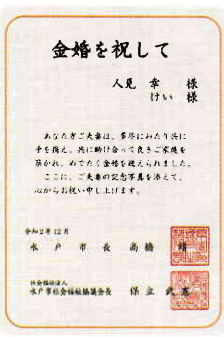 金婚を祝して
人見 幸 様
けい 様
あなた方ご夫妻は、多年にわたり共に
手を携え、共に助け合って良きご家庭を
築かれ、めでたく金婚を迎えられました。
ここに、ご夫妻の記念写真を添えて、
心からお祝い申し上げます。
令和2年12月
水戸市長 高橋 靖
社会福祉法人
水戸市社会福祉協議会長 保立 武憲